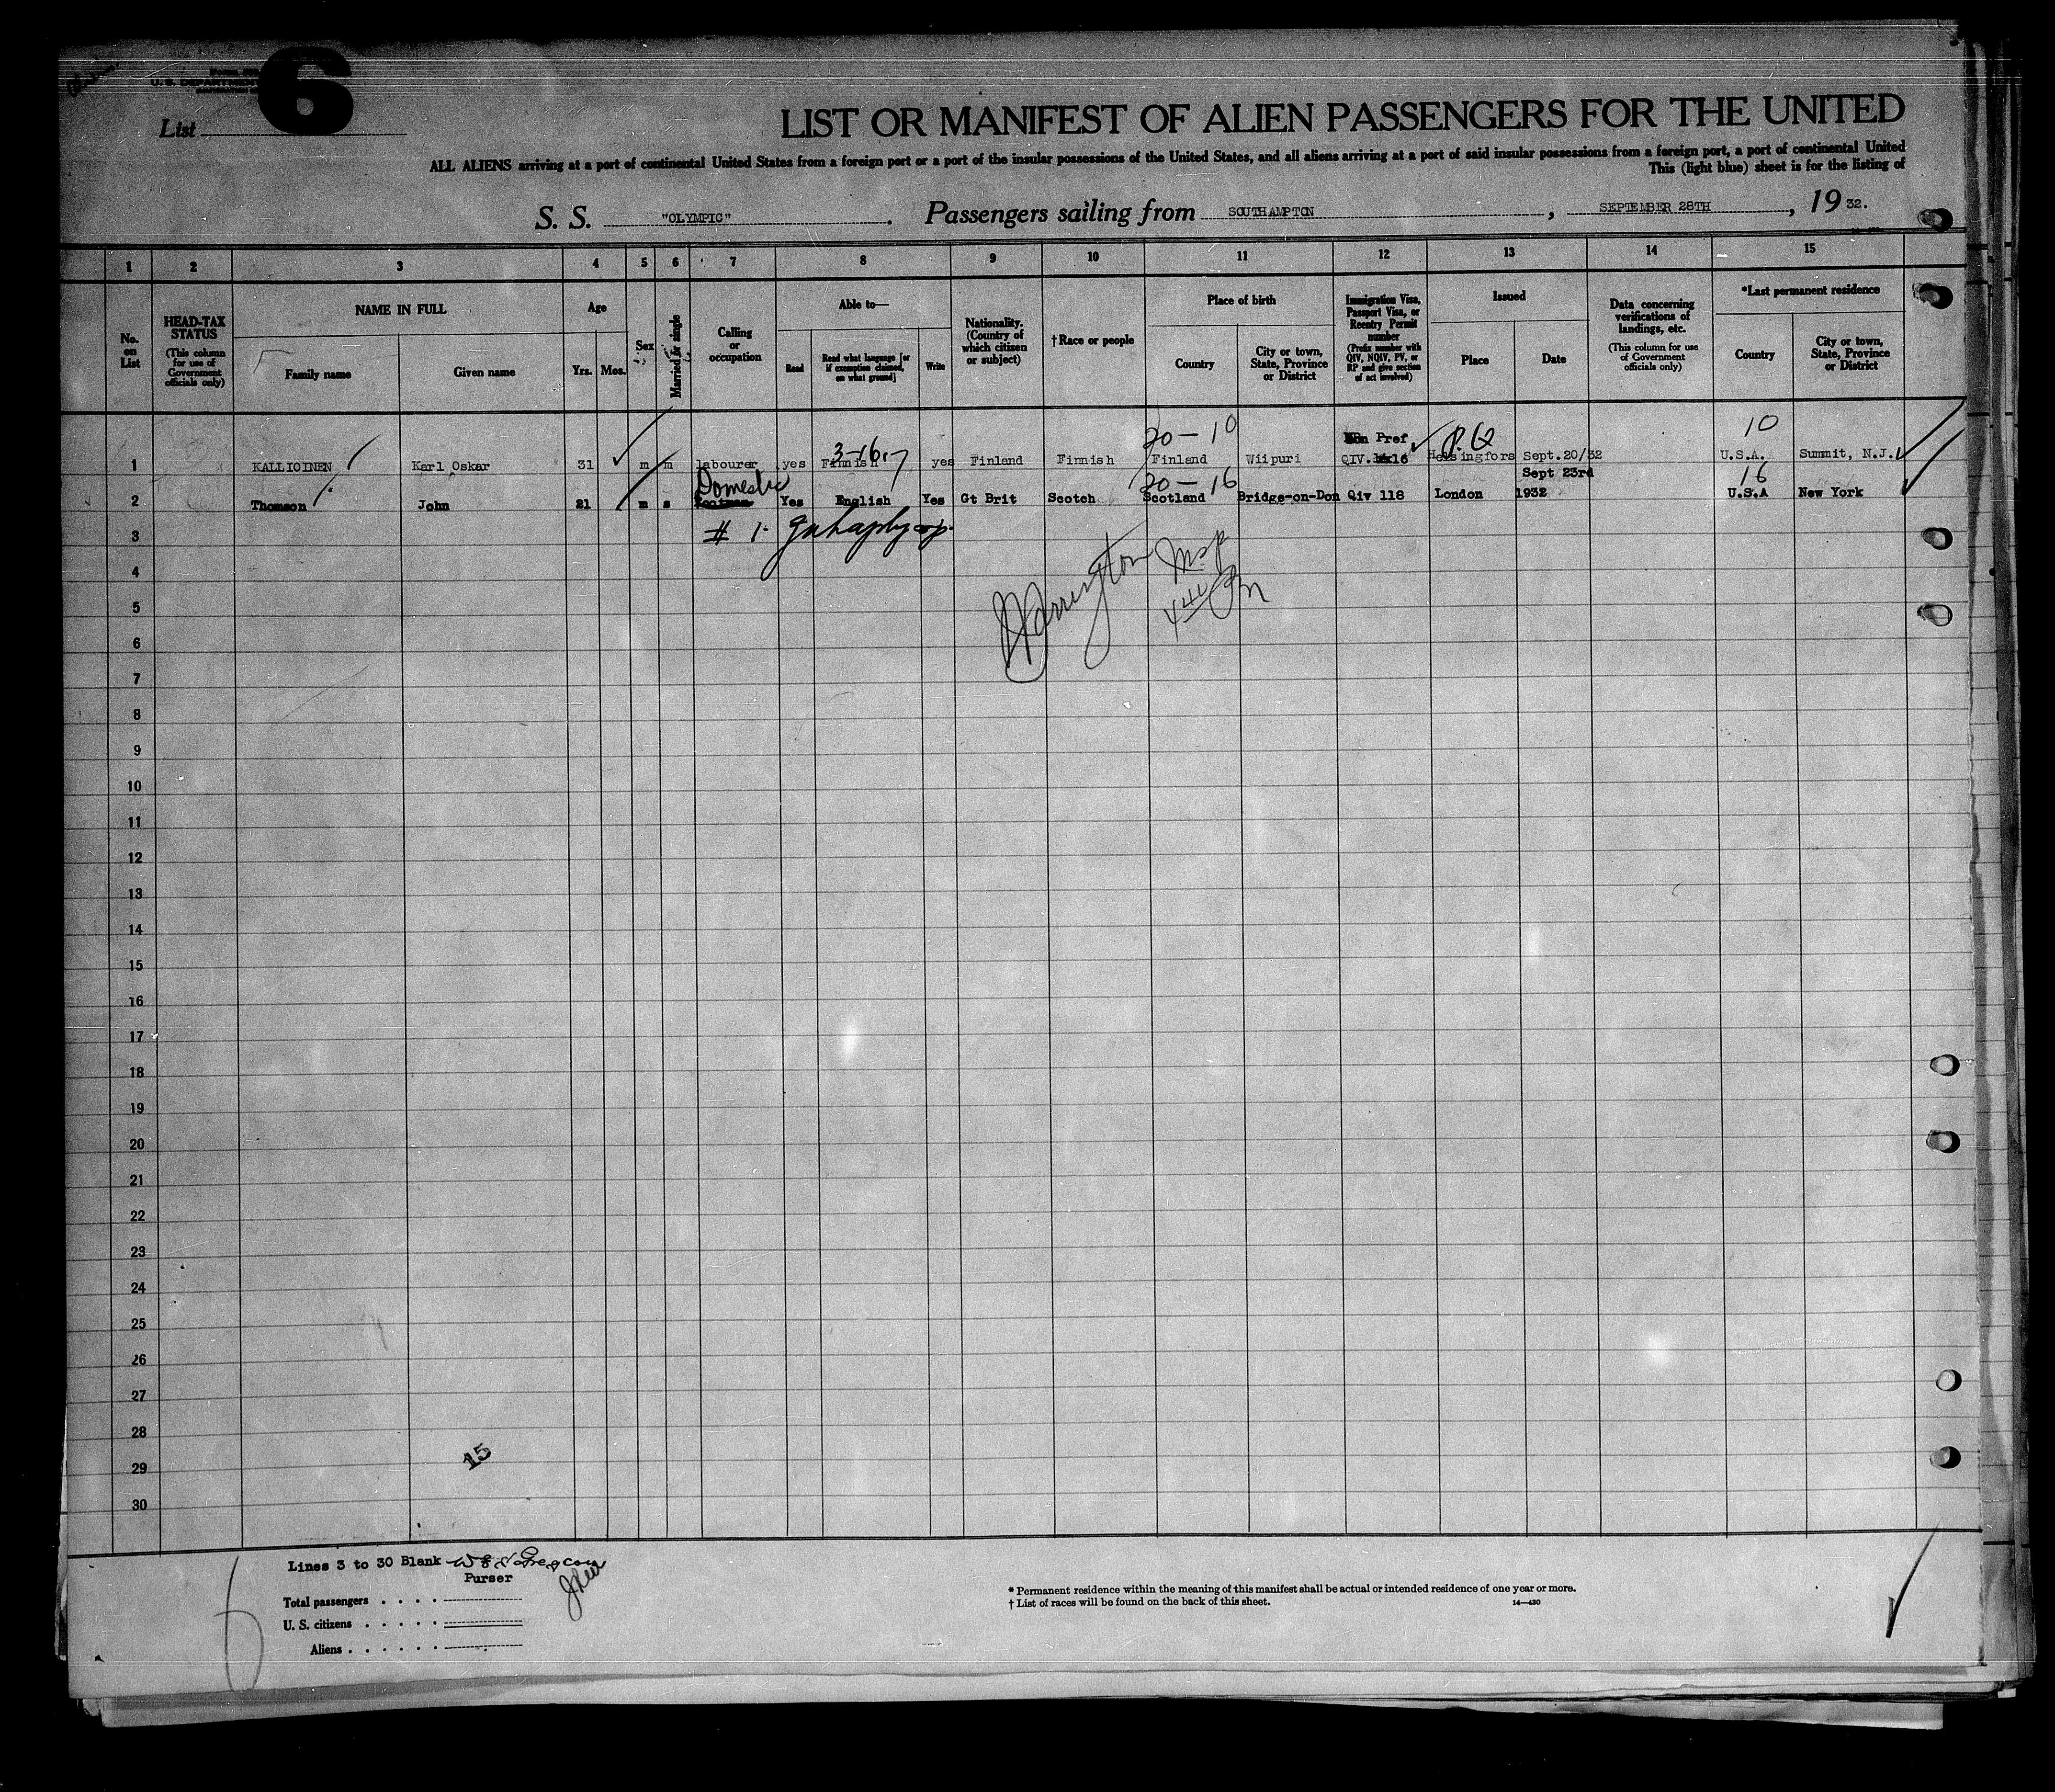 6
List
LIST OR MANIFEST OF ALIEN PASSENGERS FOR THE UNITED
ALL ALIENS arriving at a port of continental United States from a foreign port or a port of the insular possessions of the United States, and all aliens arriving at a port of said insular possessions from a foreign port, a port of continental United
This (light blue) sheet is for the listing of
S. S. "OLYMPIC". Passengers sailing from SOUTHAMPTON, SEPTEMBER 28TH, 1932.
1 2 3 4 5 6 7 8 9 10 11 12 13 14 15
No. on List
HEAD-TAX STATUS
(This column for use of Government officials only)
NAME IN FULL
Family name
Given name
Age
Yrs.
Mos.
Sex
Married or single
Calling or occupation
Able to—
Read
Read what language [or if exemption claimed, on what ground]
Write
Nationality. (Country of which citizen or subject)
†Race or people
Place of birth
Country
City or town, State, Province or District
Immigration Visa, Passport Visa, or Reentry Permit number
(Prefix number with QIV, NQIV, PV, or RP and give section of act involved)
Issued
Place
Date
Data concerning verifications of landings, etc.
(This column for use of Government officials only)
*Last permanent residence
Country
City or town, State, Province or District
20-10 Non Pref P.Q 10
1 KALLIOINEN Karl Oskar 31 m m labourer yes Finnish yes Finland Finnish Finland Wiipuri QIV. 16 Helsingfors Sept.20/32 U.S.A. Summit, N.J.
Domestic 20-16 Sept 23rd 16
2 Thomson John 21 m s Yes English Yes Gt Brit Scotch Scotland Bridge-on-Don Qiv 118 London 1932 U.S.A New York
3 # 1.
4
5
6
7
8
9
10
11
12
13
14
15
16
17
18
19
20
21
22
23
24
25
26
27
28
29 15
30
Lines 3 to 30 Blank
Purser
Total passengers . . . .
U. S. citizens . . . . .
Aliens . . . . . .
* Permanent residence within the meaning of this manifest shall be actual or intended residence of one year or more.
† List of races will be found on the back of this sheet. 14—430